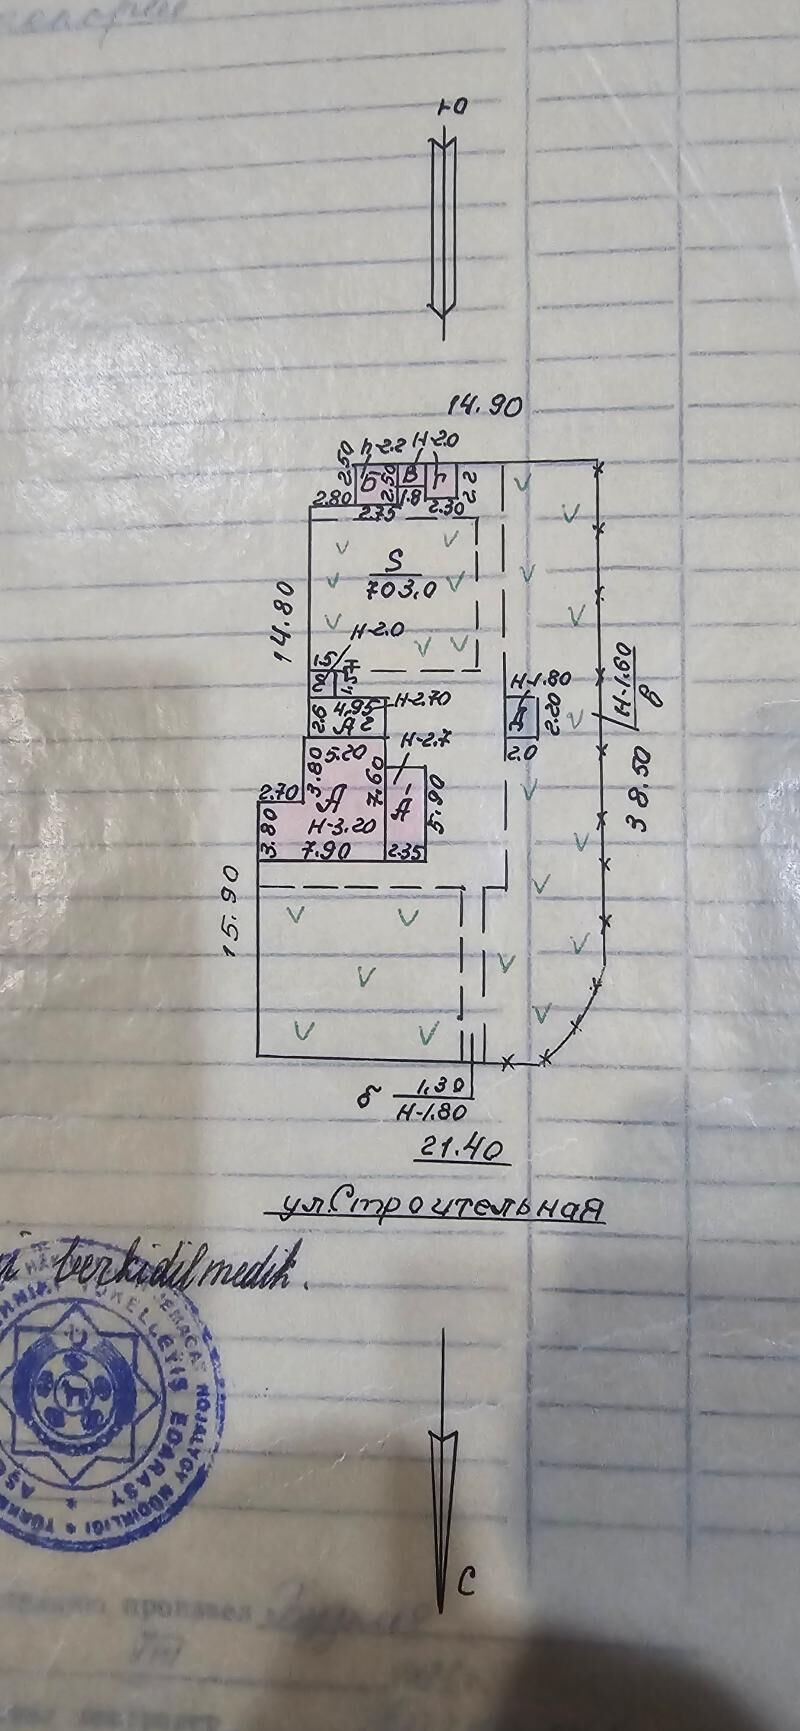 Ю
14.90
2.50
h-2.2
H-2.0
Б
2.50
В
Г
2.2
2.80
2.75
1.8
2.30
S
703,0
14.80
H-2.0
1.5
1.5
2.6
4.95
A2
H-2.70
H-1.80
Д
2.20
2.0
H-1.60
в
38.50
5.20
3.80
7.60
H-2.7
2.70
A
A1
5.90
H-3.20
3.80
7.90
2.35
15.90
б
1,30
H-1.80
21.40
ул.Строительная
berkidilmedik.
EDARASY
С
произвел